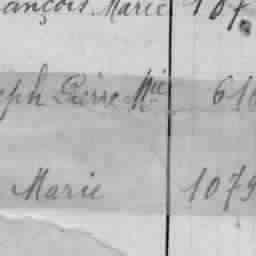 ançois Marie 107
eph Pierre Mie 616
Marie 1079